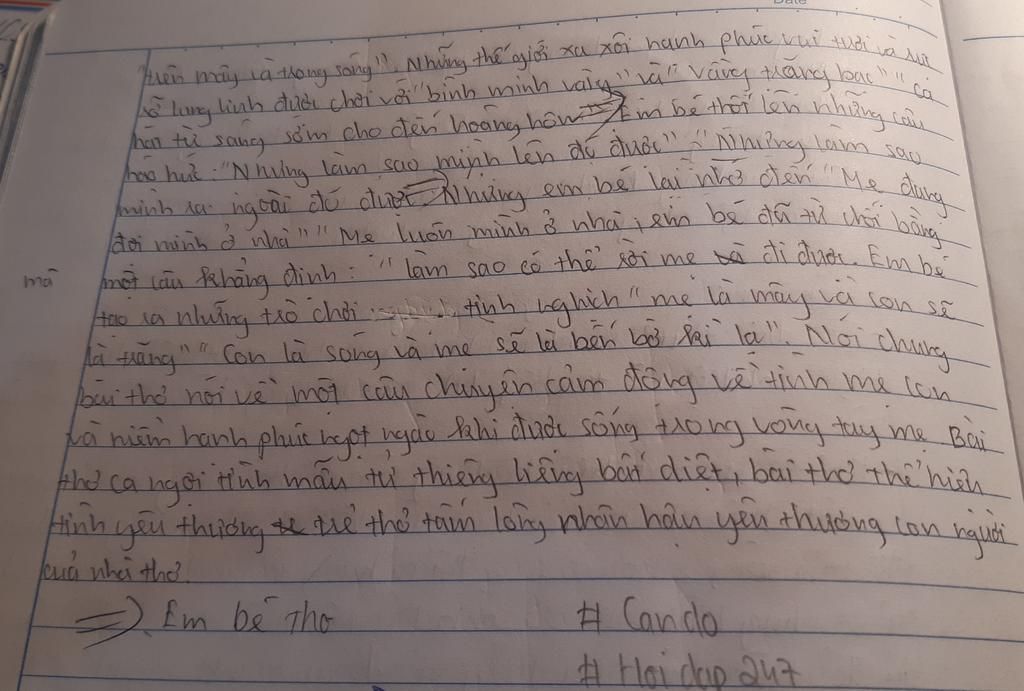 trên mây và trong sóng". Những thế giới xa xôi hạnh phúc vui tươi và
lung linh được chơi với "bình minh vàng" và "vầng trăng bạc" "cả
từ sáng sớm cho đến hoàng hôn => Em bé thốt lên những câu
háo hức. "Nhưng làm sao mình lên đó được", "Nhưng làm sao
mình ra ngoài đó được => Nhưng em bé lại nhớ đến "Mẹ đang
đợi mình ở nhà" "Mẹ luôn mình ở nhà, em bé đã từ chối bằng
mà một câu khẳng định: "làm sao có thể rời mẹ đi được. Em bé
tạo ra những trò chơi tinh nghịch "mẹ là mây và con sẽ
là trăng" "Con là sóng và mẹ sẽ là bến bờ kì lạ". Nói chung
bài thơ nói về một câu chuyện cảm động về tình mẹ con
và niềm hạnh phúc ngọt ngào khi được sống trong vòng tay mẹ Bài
thơ ca ngợi tình mẫu tử thiêng liêng bất diệt, bài thơ thể hiện
tình yêu thương trẻ thơ tấm lòng nhân hậu yêu thương con người
của nhà thơ.
=> Em bé Thơ # Cando
# Hoidap247